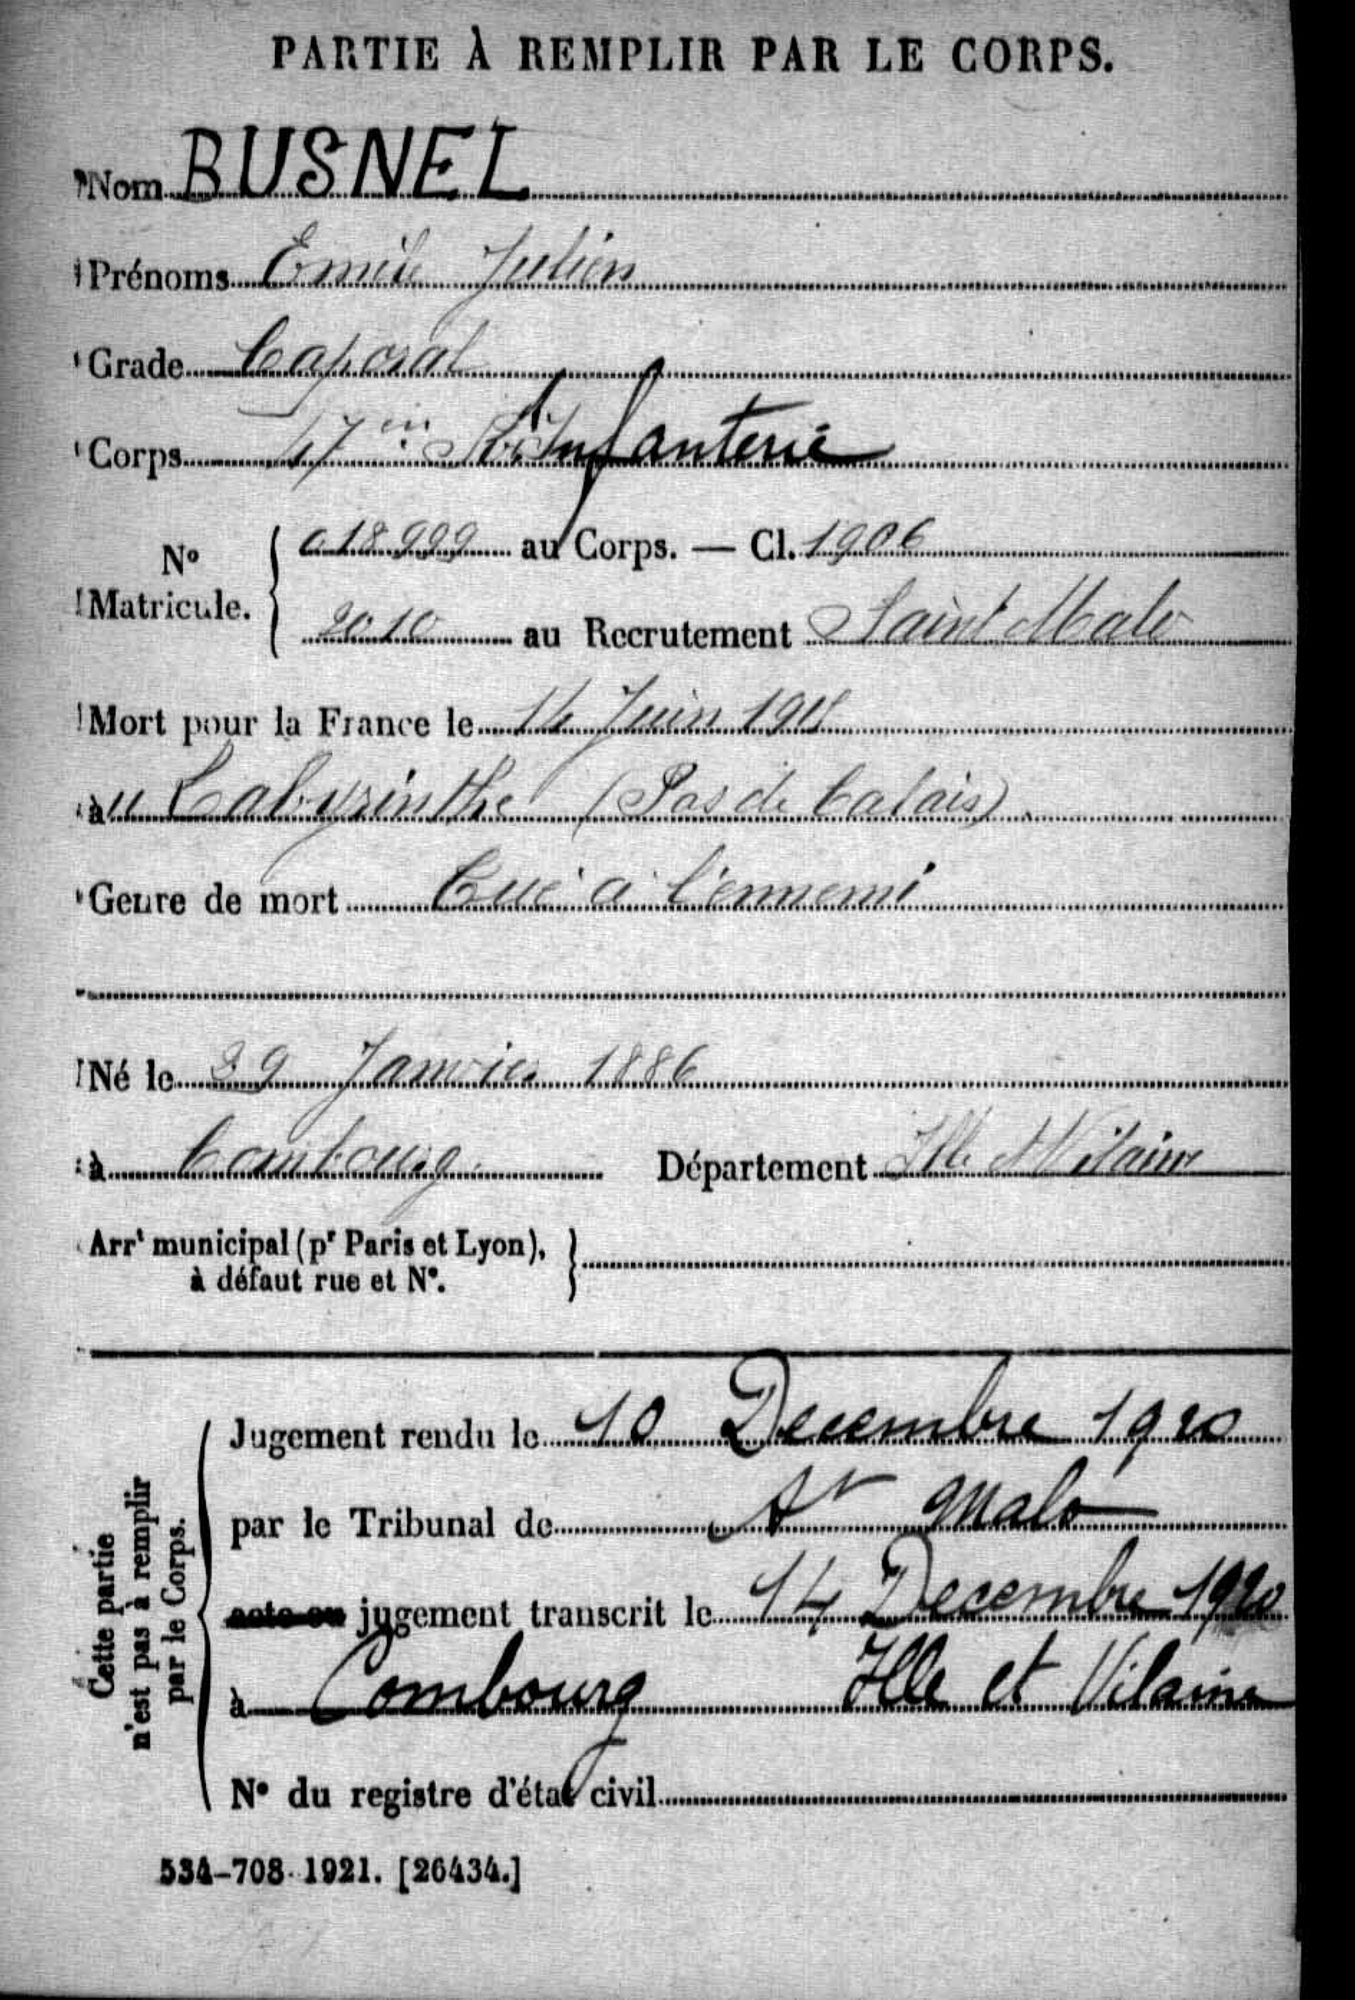 PARTIE À REMPLIR PAR LE CORPS.
Nom BUSNEL
Prénoms Emile Julien
Grade Caporal
Corps 47 em R. Infanterie
N° Matricule. { 018.999 au Corps. — Cl. 1906
2010 au Recrutement Saint Malo
Mort pour la France le 14 Juin 1915
àu Labyrinthe (Pas de Calais).
Genre de mort Tué à l'ennemi
Né le 29 Janvier 1886
à Combourg Département Ille et Vilaine
Arrt municipal (pr Paris et Lyon),
à défaut rue et N°.
Cette partie
n'est pas à remplir
par le Corps.
Jugement rendu le 10 Decembre 1920
par le Tribunal de St Malo
acte ou jugement transcrit le 14 Decembre 1920
à Combourg Ille et Vilaine
N° du registre d'état civil
534-708. 1921. [26434.]